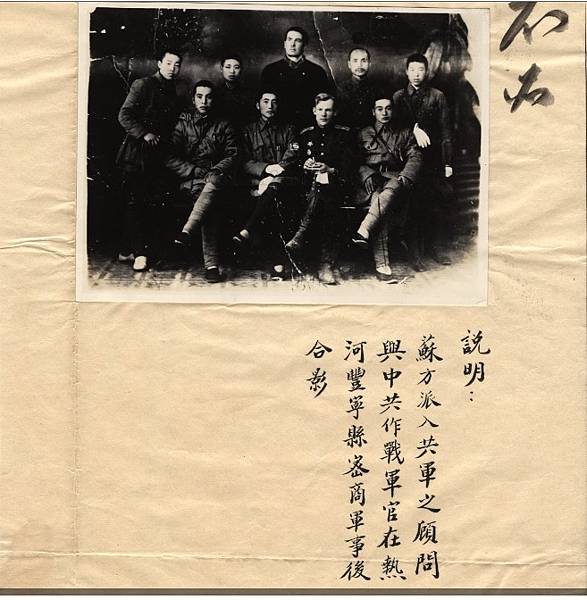 説明：
蘇方派入共軍之顧問
與中共作戰軍官在熱
河豐寧縣密商軍事後
合影